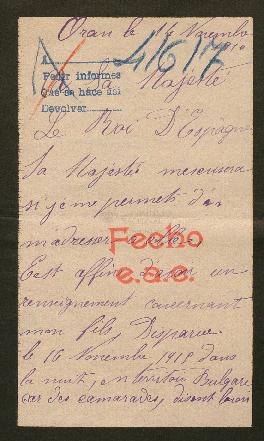 Oran le 14 Novembre
1918
41617
A
Pedir informes
Que se hace así
Devolver
a Sa Majesté
Le Roi D'Espagne
Sa Majesté mescusera
si je me permets d'
m'adresser a elle,
Fecho
e.a.c.
C'est affin d'avoir un
renseignement concernant
mon fils, Disparue
le 16 Novembre 1918 dans
la nuit, en territoir Bulgare
car des camarades, disent l'avoir